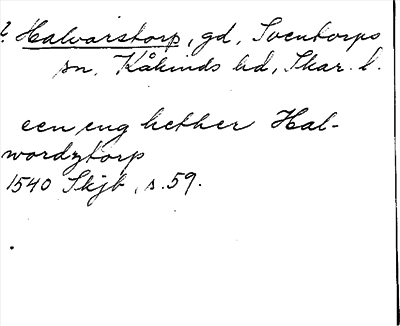 ? Halvarstorp, gd, Sventorps
sn, Kåkinds hd, Skar. l.
een eng hether Hal-
wordztorp
1540 Skjb, s. 59.